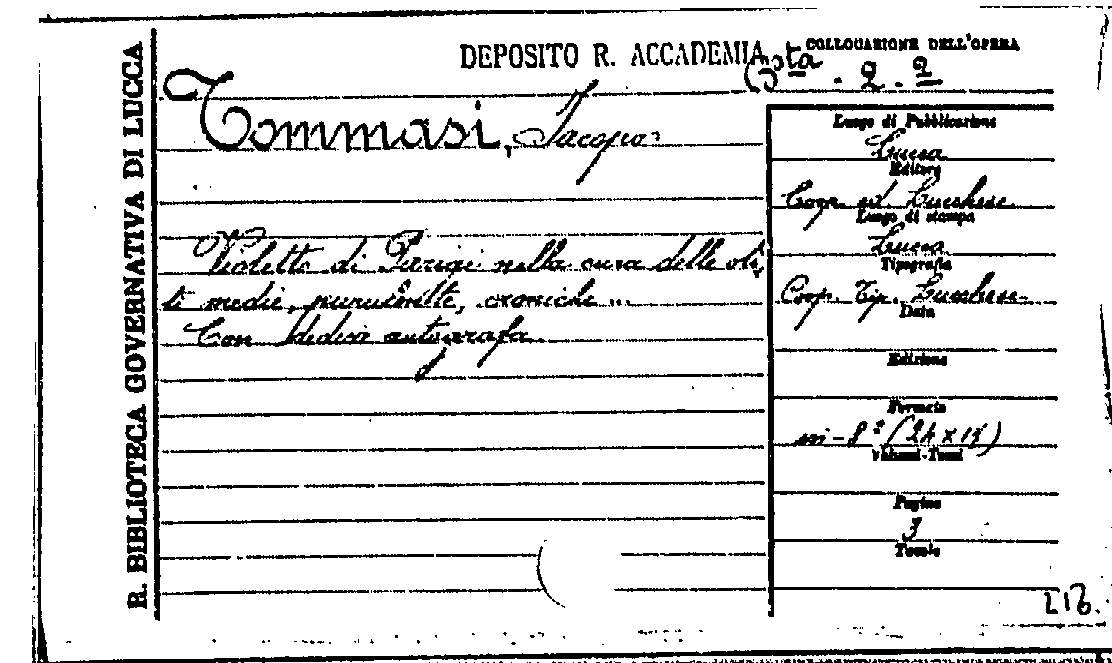 R. BIBLIOTECA GOVERNATIVA DI LUCCA
DEPOSITO R. ACCADEMIA
COLLOCAZIONE DELL'OPERA
Bta . 2 . 2
Tommasi, Jacopo
Violetto di Parigi nella cura delle oti
ti medie, purulente, croniche ...
Con dedica autografa.
Luogo di Pubblicazione
Lucca
Editore
Coop. ed. Lucchese
Luogo di stampa
Lucca
Tipografia
Coop. Tip. Lucchese
Data
Edizione
Formato
in-8º (24 x 17)
Volumi-Tomi
Pagine
3
Tavole
216.